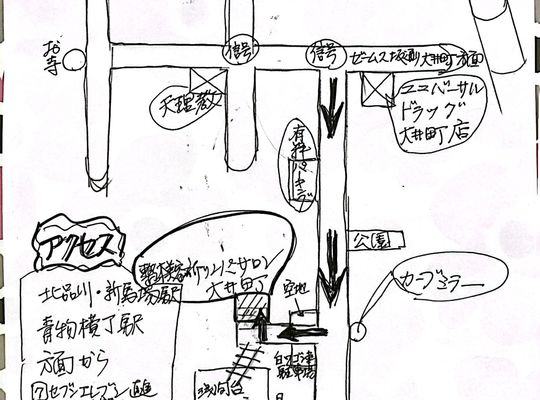 お寺
信号
信号
ゼームス坂側大井町方面
天理教
ユニバーサル
ドラッグ
大井町店
有料パーキング
アクセス
公園
大井町
カーブミラー
空地
北品川・新馬場駅
青物横丁駅
方面から
⑦セブンエレブン直進
駐車場